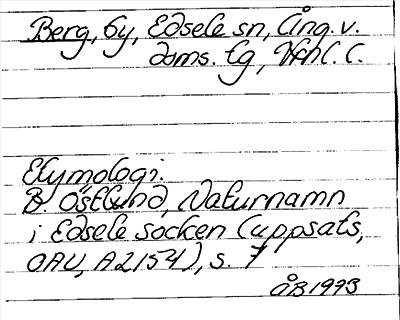 Berg, by, Edsele sn, Ång. v.
doms. tg, Vnl. l.
Etymologi.
B. Östlund, Naturnamn
i Edsele socken (uppsats,
OAU, A2154), s. 7
ÅB 1993